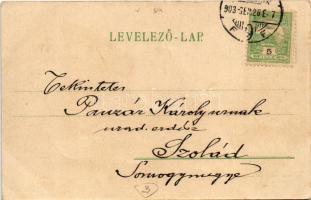 LEVELEZŐ-LAP.
903
5
Tekintetes
Pruzár Károly urnak
urad. erdész
Szólád
Somogymegye
3